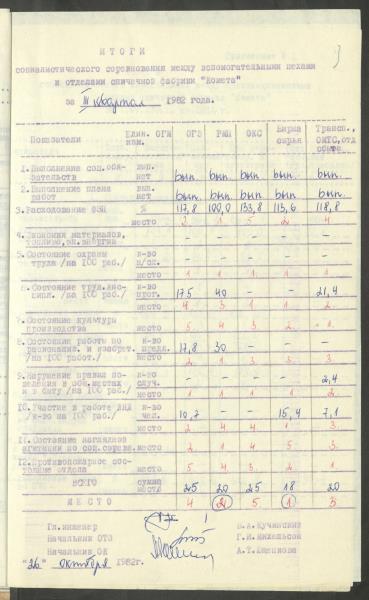 3
ИТОГИ
социалистического соревнования между вспомогательными цехами
и отделами спичечной фабрики "Комета"
за III квартал 1982 года.
Показатели Един. изм. ОГМ ОГЭ РМЦ ОКС Биржа сырья Трансп., ОМТС, отд. сбыта
1. Выполнение соц. обязательств вып. нет вып. вып. вып. вып. вып.
2. Выполнение плана работ вып. нет вып. вып. вып. вып. вып.
3. Расходование ФЗП % 117,8 100,0 133,8 113,6 118,8
место 3 1 5 2 4
4. Экономия материалов, топлива, эл. энергии - - - - -
5. Состояние охраны труда /на 100 раб./ к-во н/сл. - - - - -
место 1 1 1 1 1
6. Состояние труд. дисципл. /на 100 раб./ к-во прог. 175 40 - - 21,4
место 4 3 1 1 2
7. Состояние культуры производства место 5 4 3 2 1
8. Состояние работы по рационализ. и изобрет. /на 100 работ./ к-во предл. 17,8 30 - - -
место 2 1 3 3 3
9. Нарушение правил поведения в общ. местах и в быту /на 100 раб./ к-во случ. - - - - 2,4
место 1 1 1 1 2
10. Участие в работе ДНД /к-во на 100 раб./ к-во чел. 10,7 - - 15,4 7,1
место 2 4 4 1 3
11. Состояние наглядной агитации по соц. соревн. место 2 1 4 5 3
12. Противопожарное состояние отдела место 5 4 3 2 1
ВСЕГО сумма места 25 20 25 18 20
МЕСТО 4 2 5 1 3
Гл. инженер В.А.Кучинский
Начальник ОТЗ
Начальник ОК
"26" октября 1982г.